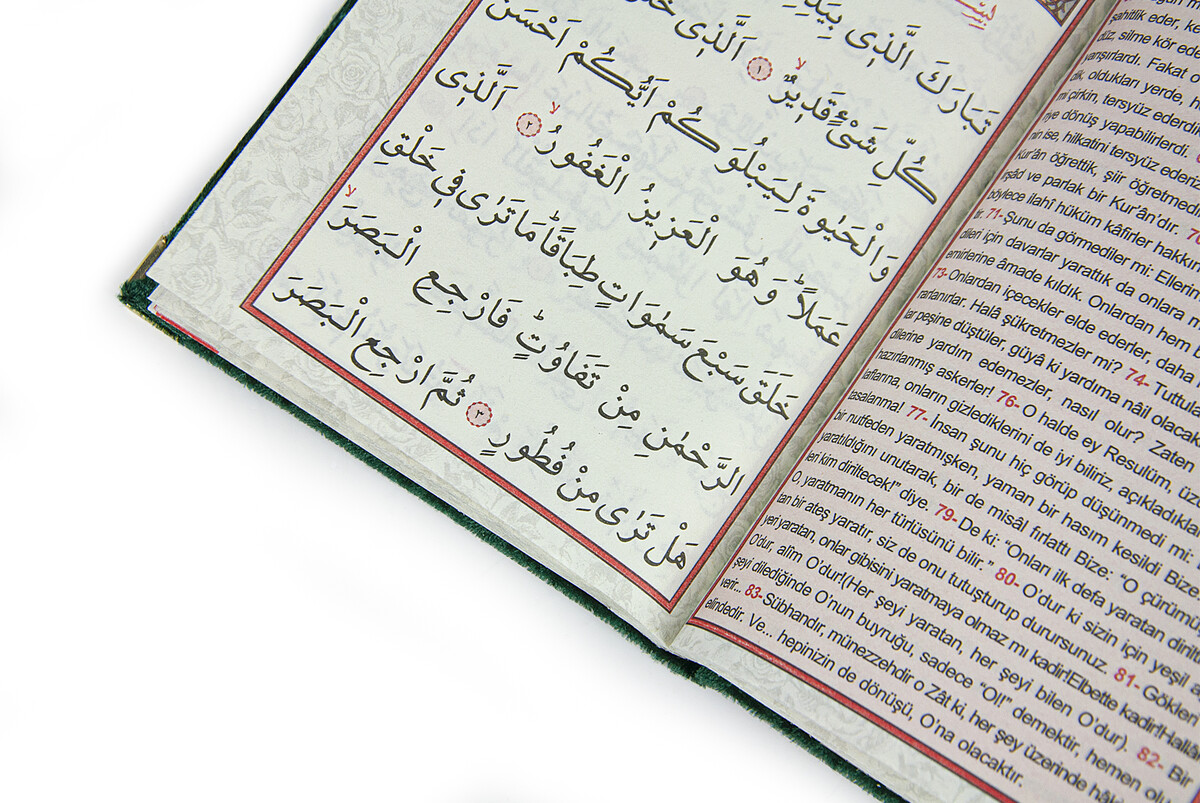 تَبَارَكَ الَّذِى
كُلِّ شَىْءٍ قَدِيرٌۙ ١ اَلَّذِى
وَالْحَيٰوةَ لِيَبْلُوَكُمْ اَيُّكُمْ اَحْسَنُ
عَمَلًاۜ وَهُوَ الْعَزِيزُ الْغَفُورُۙ ٢ اَلَّذِى
خَلَقَ سَبْعَ سَمٰوَاتٍ طِبَاقًاۜ مَا تَرٰى فِى خَلْقِ
الرَّحْمٰنِ مِنْ تَفَاوُتٍۜ فَارْجِعِ الْبَصَرَۙ
هَلْ تَرٰى مِنْ فُطُورٍ ٣ ثُمَّ ارْجِعِ الْبَصَرَ
şahitlik eder,
düz, silme kör
yarışırlardı. Fakat
oldukları yerde,
çirkin, tersyüz ederdi
dönüş yapabilirlerdi.
ise, hilkatini tersyüz ederiz
Kur'ân öğrettik, şiir öğretmedi
ve parlak bir Kur'ân'dır.
böylece ilahî hüküm kâfirler
71-Şunu da görmediler mi: Ellerin
için davarlar yarattık da onlara
emirlerine âmade kıldık. Onlardan hem
73-Onlardan içecekler elde ederler, daha
Halâ şükretmezler mi? 74- Tuttula
peşine düştüler, güyâ ki yardıma nâil olacak
dilerine yardım edemezler, nasıl olur? Zaten
hazırlanmış askerler! 76- O halde ey Resulüm,
onların gizlediklerini de iyi biliriz, açıkladıkla
tasalanma! 77- İnsan şunu hiç görüp düşünmedi mi:
bir nutfeden yaratmışken, yaman bir hasım kesildi Bize
yaratıldığını unutarak, bir de misâl fırlattı Bize: "O çürümü
kim diriltecek!" diye. 79-De ki: "Onları ilk defa yaratan dirilt
O, yaratmanın her türlüsünü bilir." 80- O'dur ki sizin için yeşil
tan bir ateş yaratır, siz de onu tutuşturup durursunuz. 81- Gökleri
yeri yaratan, onlar gibisini yaratmaya olmaz mı kadir!Elbette kadir!Hallâ
O'dur, alîm O'dur!(Her şeyi yaratan, her şeyi bilen O'dur). 82- Bir
şeyi dilediğinde O'nun buyruğu, sadece "Ol!" demektir, hemen
verir... 83-Sübhandır, münezzehdir o Zât ki, her şey üzerinde
elindedir. Ve... hepinizin de dönüşü, O'na olacaktır.